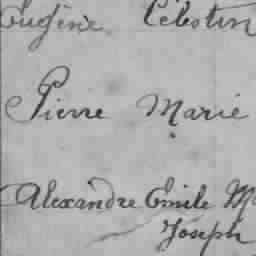 Eugène Célestin
Pierre Marie
Alexandre Emile
Joseph